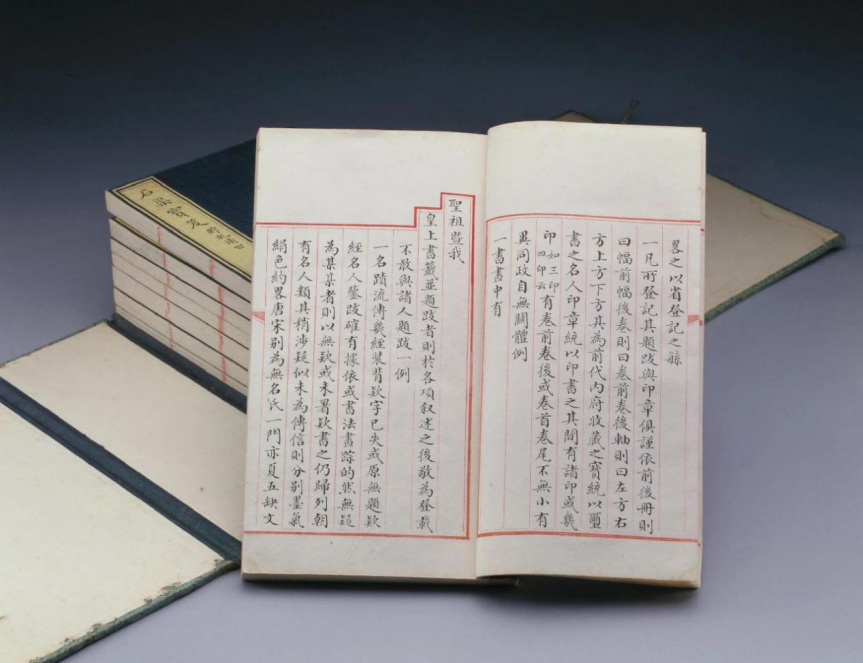 畧之以省登記之緐
一凡所登記其題跋與印章俱謹依前後冊則
曰幅前幅後卷則曰卷前卷後軸則曰左方右
方上方下方其為前代內府收藏之寶統以璽
書之名人印章統以印書之其間有諸印或幾
印如三印四印云有卷前卷後或卷首卷尾不無小有
異同政自無關體例
一書書中有
聖祖暨我
皇上書籤並題跋者則於各項叙述之後敬為登載
不敢與諸人題跋一例
一名蹟流傳幾經裝背欵字已失或原無題欵
經名人鑒跋確有據依或書法畫踪的然無疑
為某某者則以無欵或未署欵書之仍歸列朝
有名人類其稍涉疑似未為傳信則分別墨氣
絹色約畧唐宋別為無名氏一門亦夏五缺文
石渠寶笈